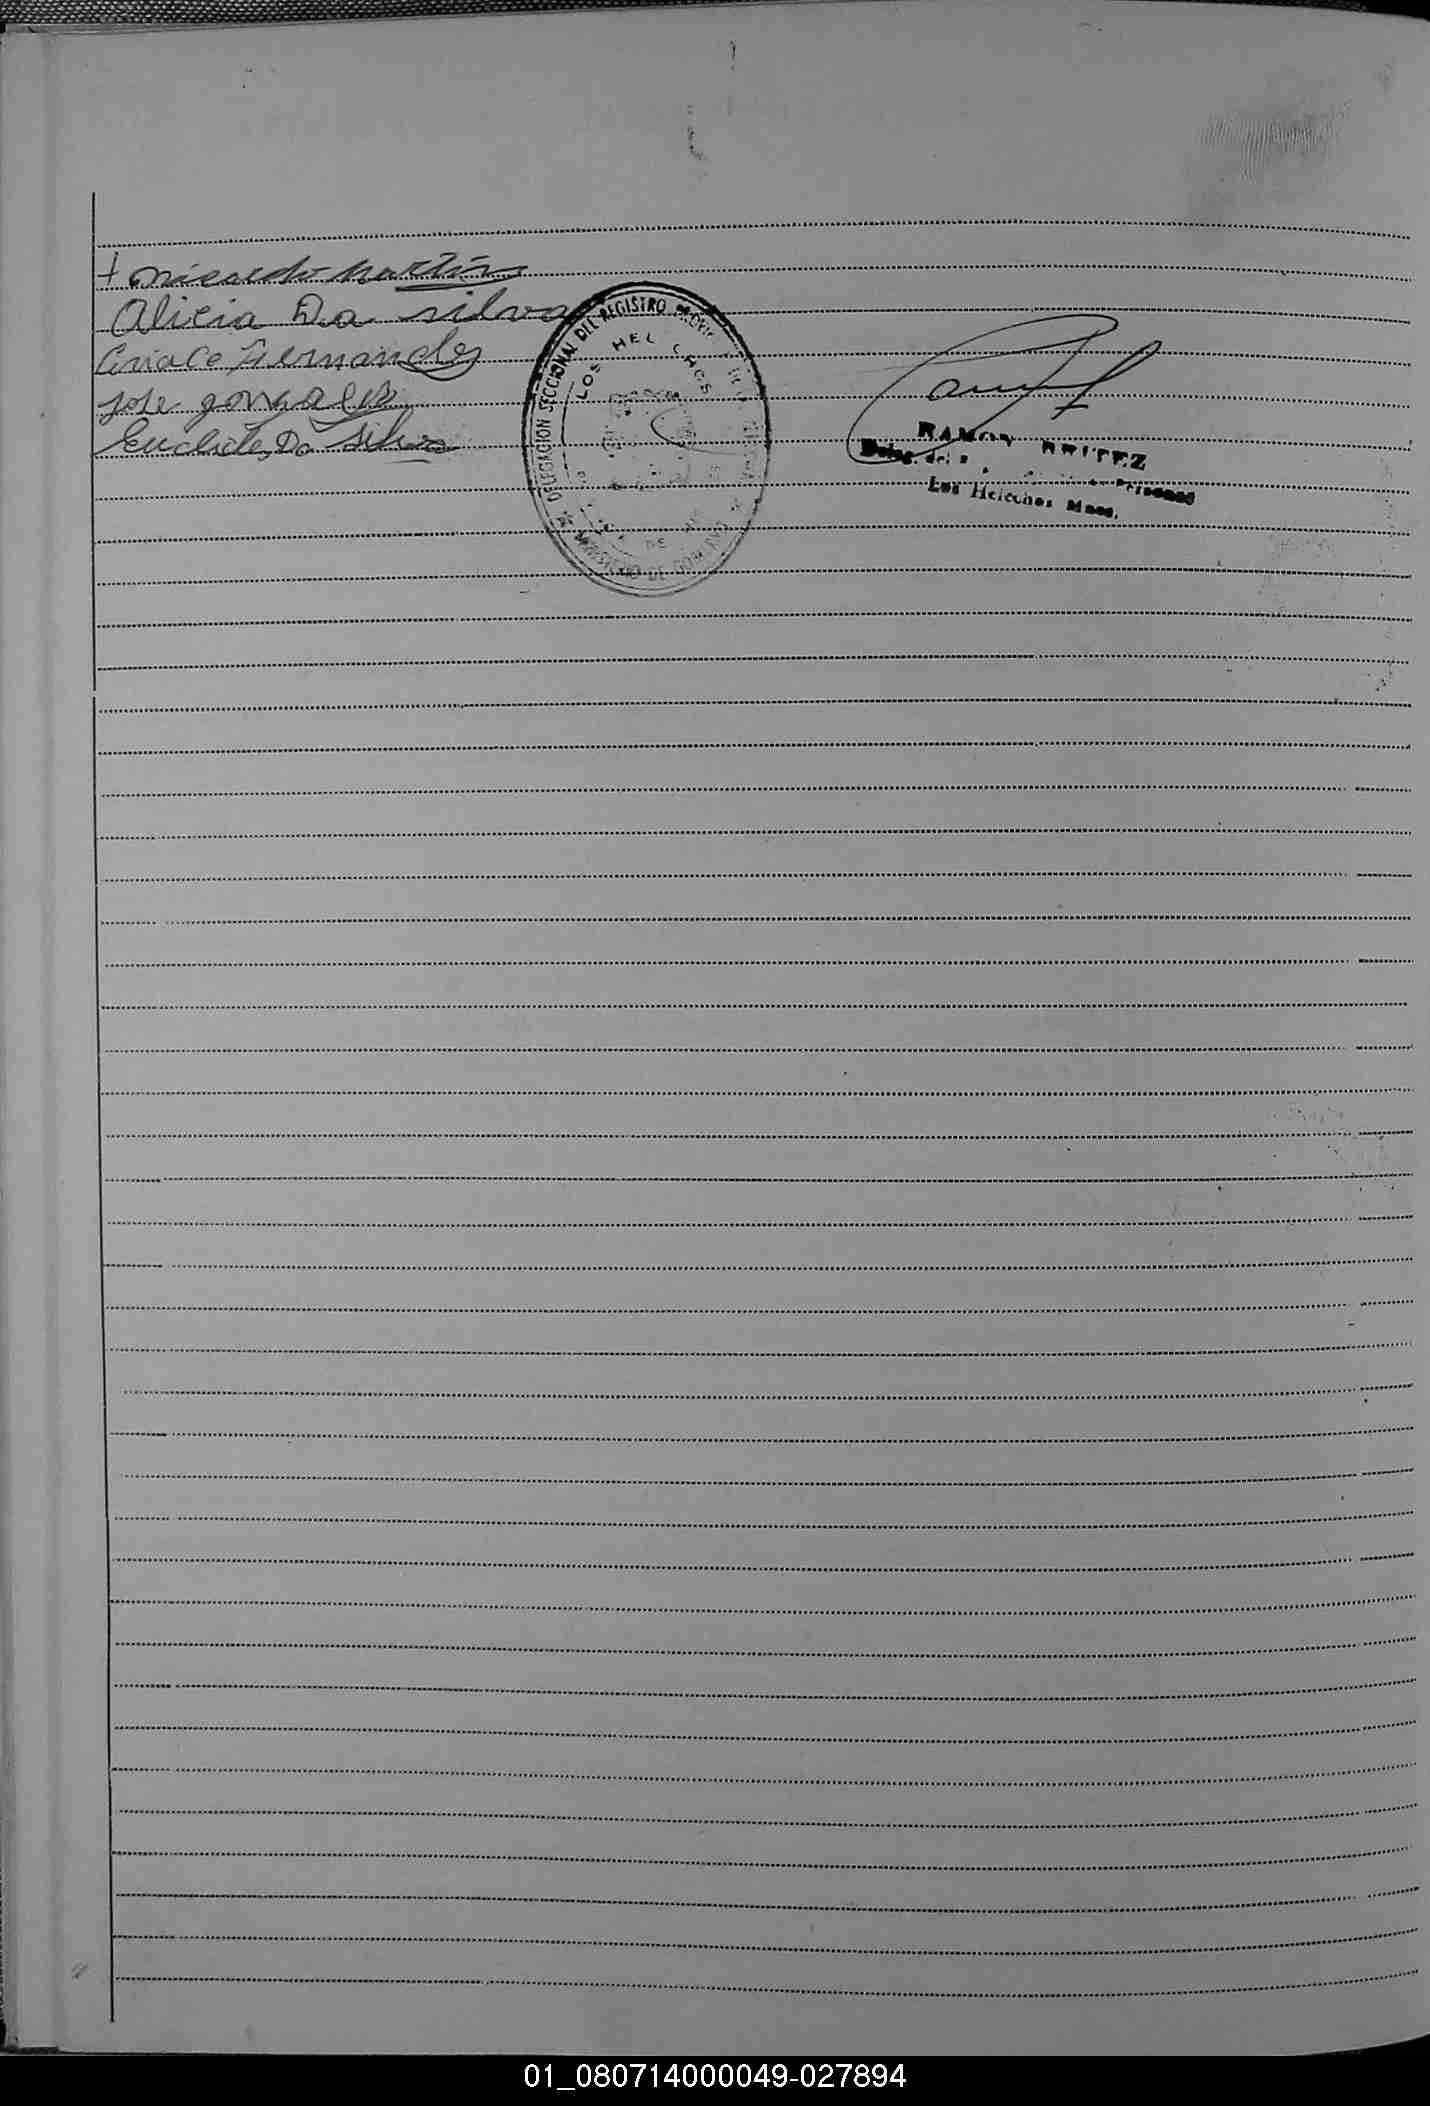 + nicardo Martins
Alicia Da silva
Ciriaco Fernandes
jose gonsales
Euclides Da Silva
DELEGACION SECCIONAL DEL REGISTRO
LOS HELECHOS
MINISTERIO DE
RAMON BRITEZ
Deleg. del Personas
Los Helechos Mnes.
01_080714000049-027894